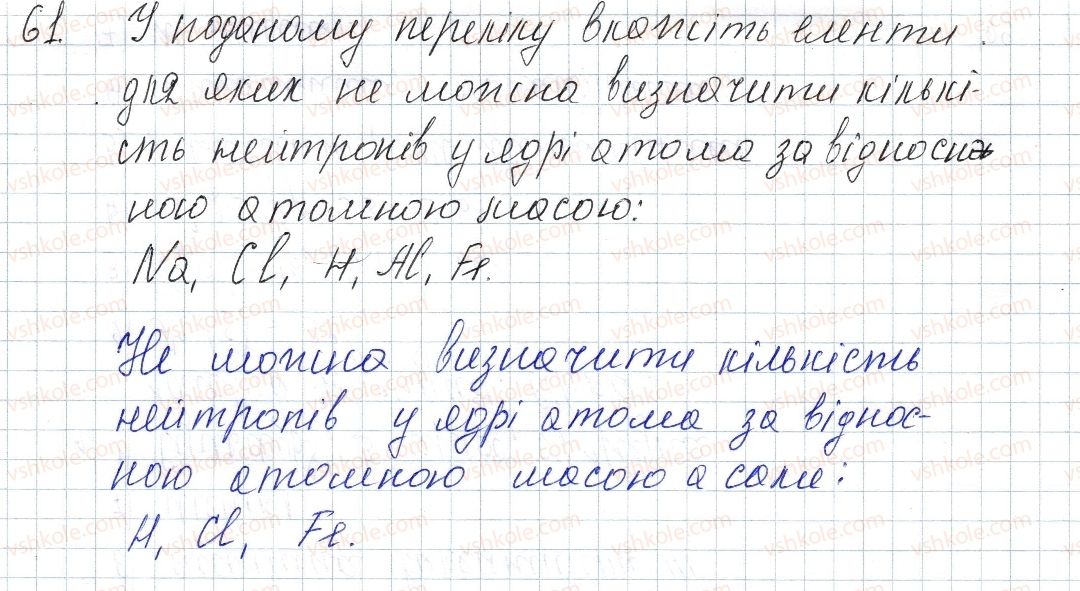 61. У поданому переліку вкажіть еленти
для яких не можна визначити кількі-
сть нейтронів у ядрі атома за відносн
ною атомною масою:
Na, Cl, H, Al, Fe.
Не можна визначити кількість
нейтронів у ядрі атома за віднос-
ною атомною масою а саме:
H, Cl, Fe.